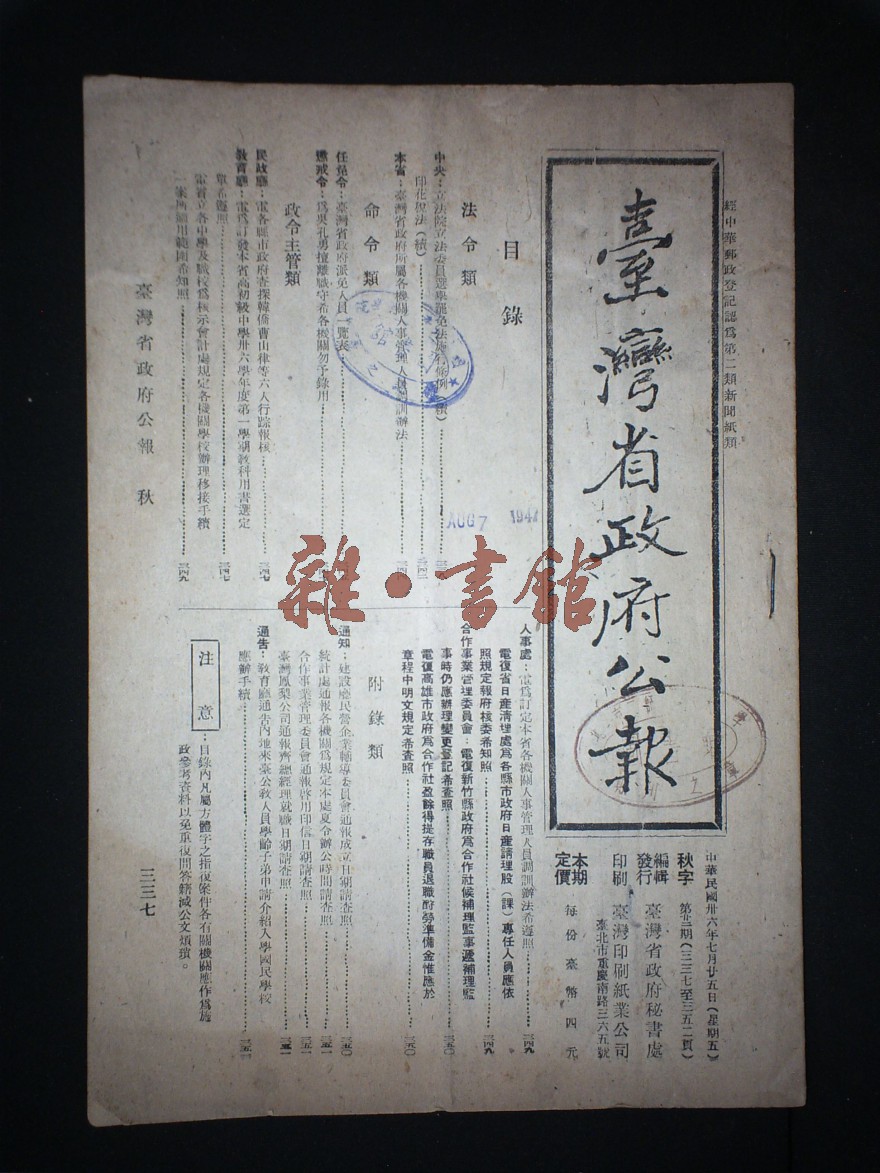 經中華郵政登記認爲第二類新聞紙類
臺灣省政府公報
中華民國卅六年七月廿五日(星期五)
秋字
第廿二期(三三七至三五二頁)
編輯
發行
臺灣省政府秘書處
印刷
臺灣印刷紙業公司
臺北市重慶南路三六五號
本期
定價
每份臺幣四元
目錄
法令類
中央:立法院立法委員選舉罷免法施行條例(續)
印花稅法(續)
本省:臺灣省政府所屬各機關人事管理人員調訓辦法
命令類
任免令:臺灣省政府派免人員一覽表
懲戒令:爲吳孔勇擅離職守希各機關勿予錄用
政令主管類
民政廳:電各縣市政府查探韓僑曹山律等六人行踪報核 三四七
教育廳:電爲訂發本省高初級中學卅六學年度第一學期敎科用書選定
單希遵照 三四七
電省立各中學及職校爲核示會計處規定各機關學校辦理移接手續
一案所適用範圍希知照 三四九
人事處:電爲訂定本省各機關人事管理人員調訓辦法希遵照 三四九
電復省日產清理處爲各縣市政府日產請理股(課)專任人員應依
照規定報府核委希知照 三四九
合作事業管理委員會:電復新竹縣政府爲合作社候補理監事遞補理監
事時仍應辦理變更登記希查照 三五〇
電復高雄市政府爲合作社盈餘得提存職員退職酧勞準備金惟應於
章程中明文規定希查照 三五〇
附錄類
通知:建設廳民營企業輔導委員會通報成立日期請查照 三五〇
統計處通報各機關爲規定本處夏令辦公時間請查照 三五一
合作事業管理委員會通報啓用印信日期請查照 三五一
臺灣鳳梨公司通報齊總經理就職日期請查照 三五一
通告:敎育廳通告內地來臺公敎人員學齡子弟申請介紹入學國民學校
應辦手續 三五一
注意
:目錄內凡屬方體字之指復案件各有關機關應作爲施
政參考資料以免重復問答縮減公文煩瑣。
臺灣省政府公報 秋
三三七
AUG 7 194
雜·書館